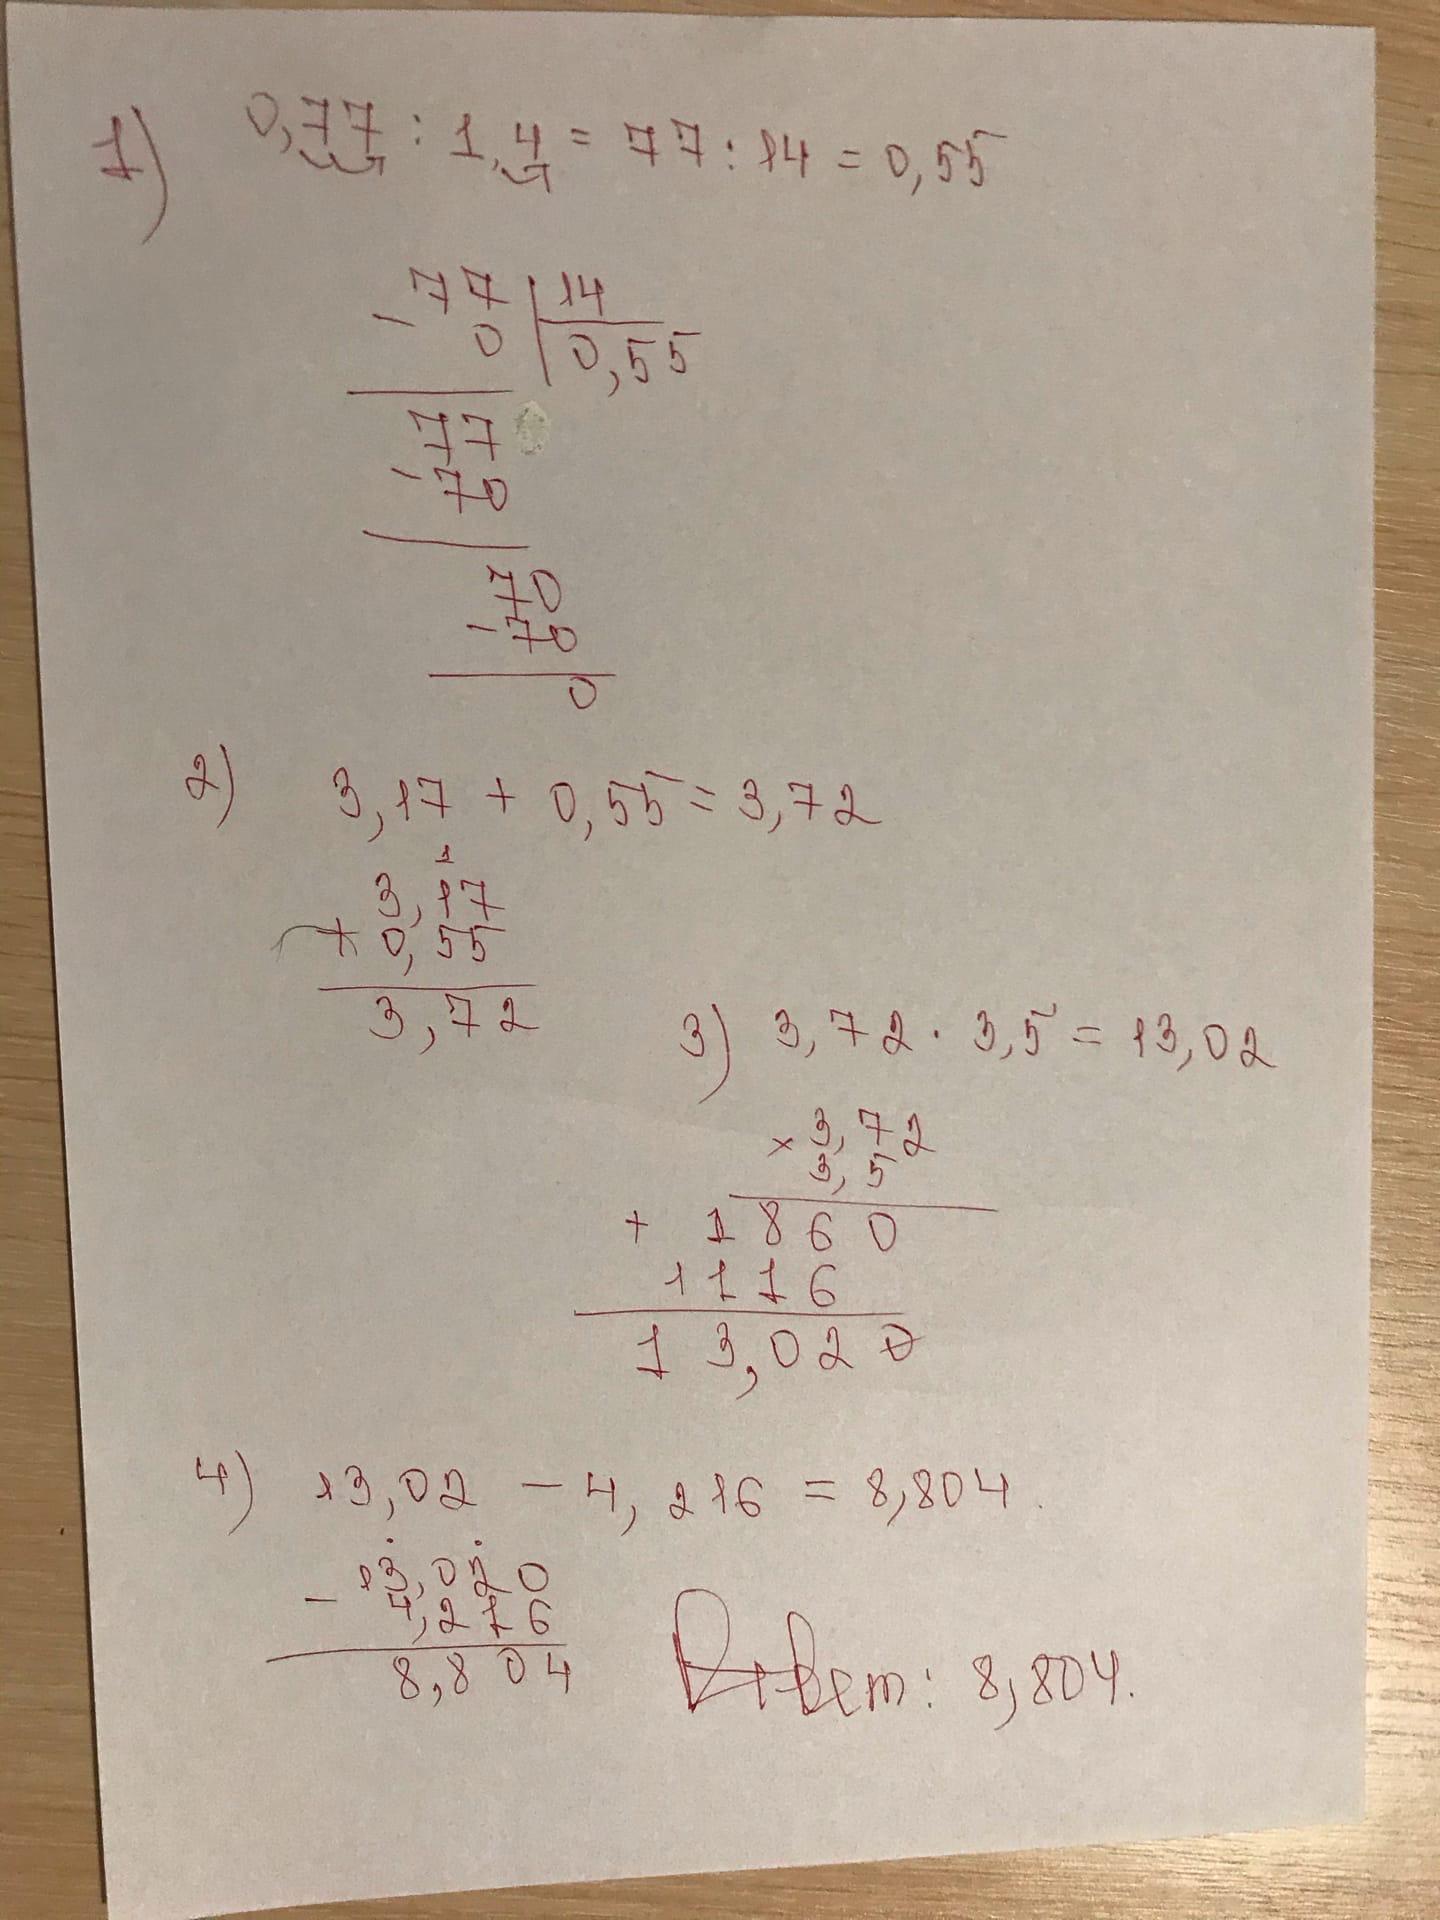 1) 0,77 : 1,4 = 77 : 14 = 0,55
77 | 14
- 0 | 0,55
77
- 70
70
- 70
0
2) 3,17 + 0,55 = 3,72
1
3,17
+ 0,55
3,72
3) 3,72 · 3,5 = 13,02
× 3,72
3,5
+ 1860
1116
13,020
4) 13,02 - 4,216 = 8,804.
- 13,020
4,216
8,804
Ответ: 8,804.